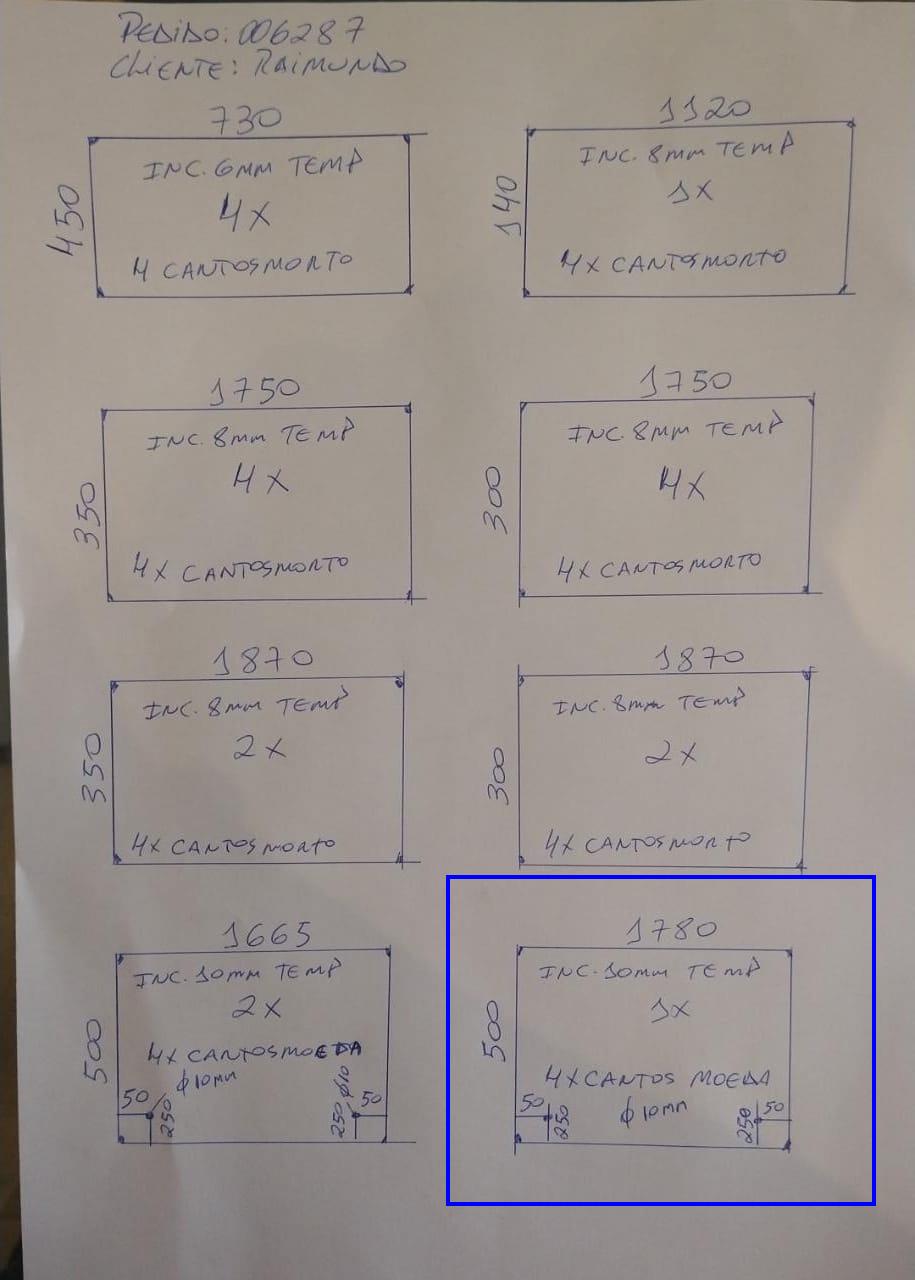 PEDIDO: 006287
CLIENTE: RAIMUNDO
730
450
INC. 6MM TEMP
4X
4 CANTOS MORTO
1120
140
INC. 8mm TEMP
1X
4X CANTOS MORTO
1750
350
INC. 8mm TEMP
4X
4X CANTOS MORTO
1750
300
INC. 8mm TEMP
4X
4X CANTOS MORTO
1870
350
INC. 8mm TEMP
2X
4X CANTOS MORTO
1870
300
INC. 8mm TEMP
2X
4X CANTOS MORTO
1665
500
INC. 10mm TEMP
2X
4X CANTOS MOEDA
50 ϕ10mm 250
250 ϕ10 50
1780
500
INC. 10mm TEMP
1X
4X CANTOS MOEDA
50 250 ϕ10mm 250 50